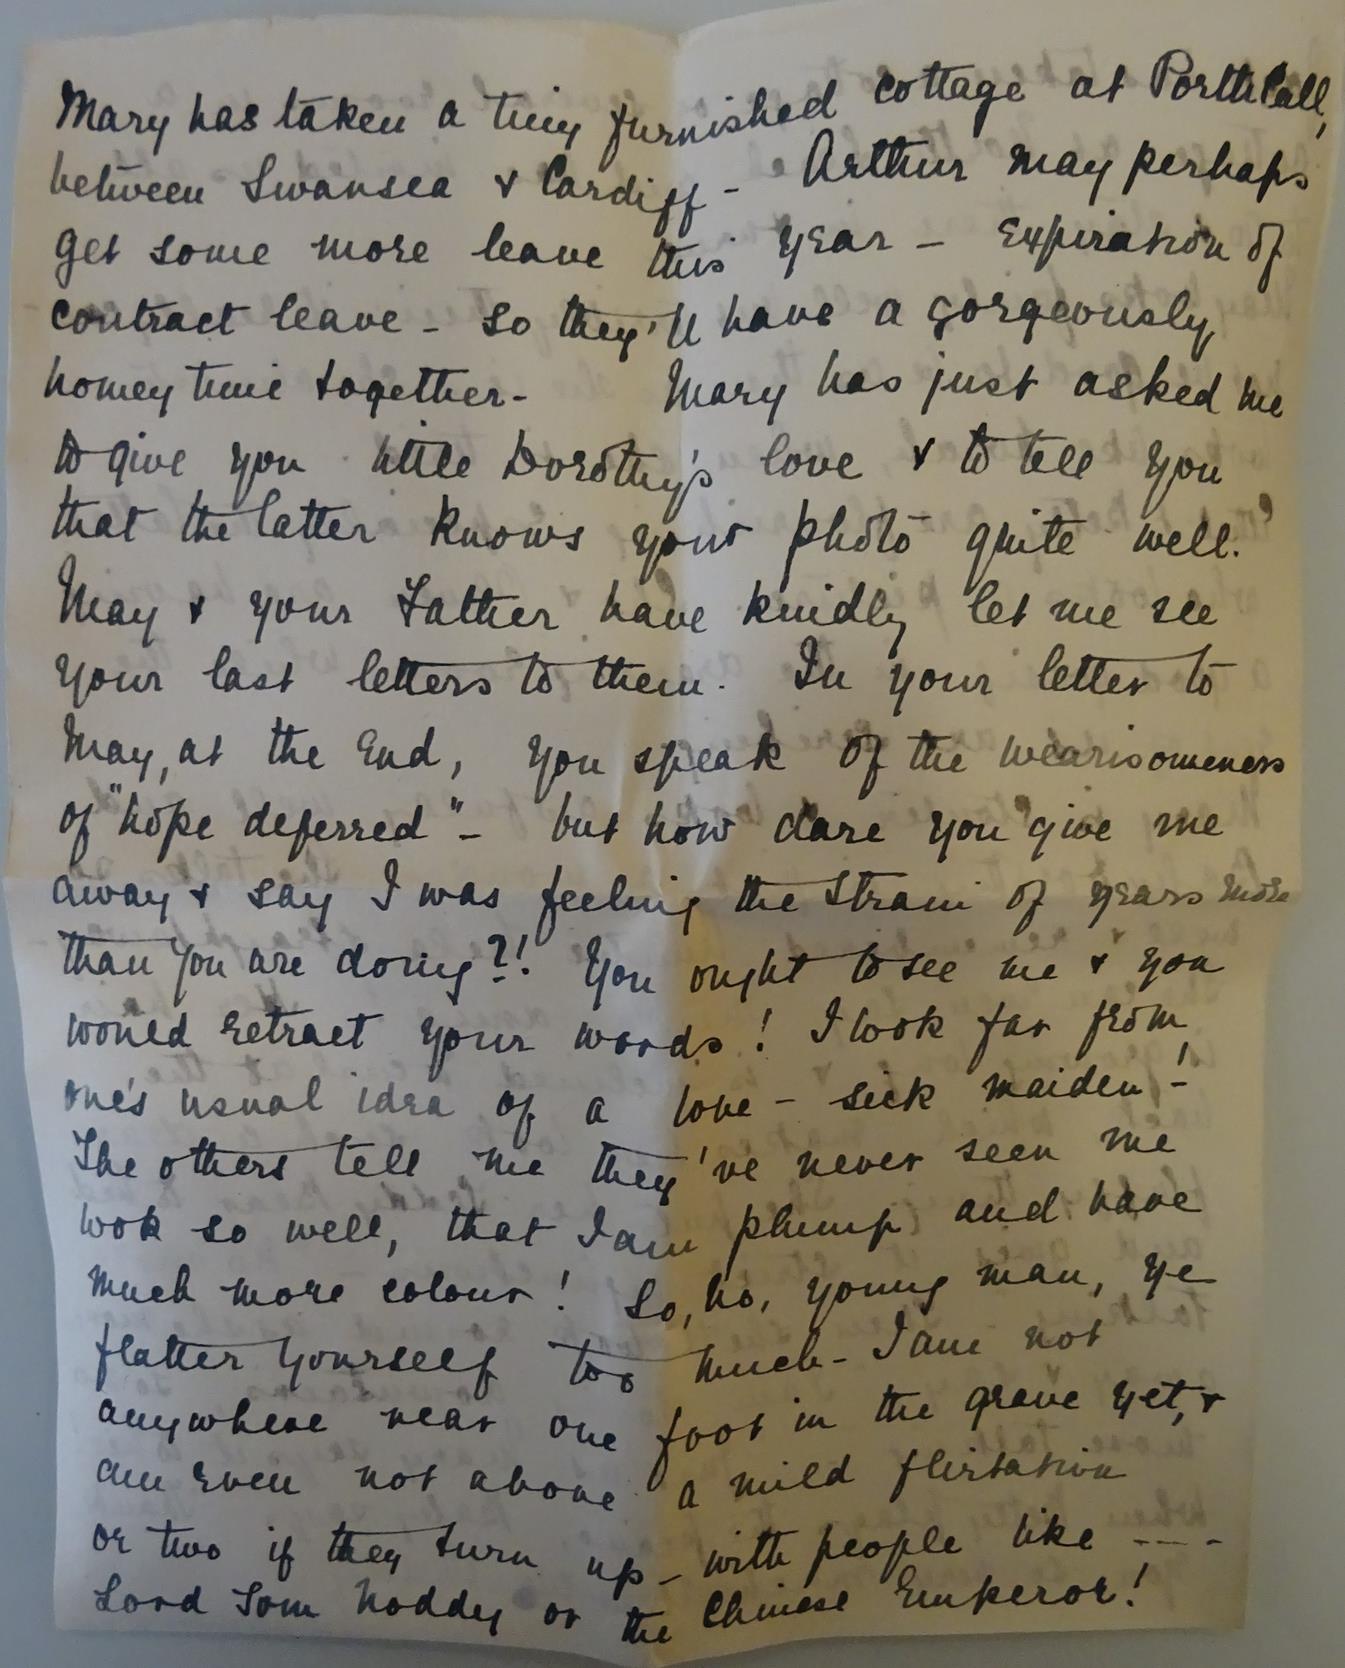 Mary has taken a tiny furnished cottage at PorthCall,
between Swansea & Cardiff - Arthur may perhaps
get some more leave this year - expiration of
contract leave - so they'll have a gorgeously
homey time together - Mary has just asked me
to give you little Dorothy's love & to tell you
that the latter knows your photo quite well.'
May & your Father have kindly let me see
your last letters to them. In your letter to
May, at the end, you speak of the wearisomeness
of "hope deferred" - but how dare you give me
away & say I was feeling the strain of years more
than you are doing?! You ought to see me & you
would retract your words! I look far from
one's usual idea of a love-sick maiden!
The others tell me they've never seen me
look so well, that I am plump and have
much more colour! So, ho, young man, ye
flatter yourself too much - I am not
anywhere near one foot in the grave yet, &
am even not above a mild flirtation
or two if they turn up - with people like ----
Lord Tom Noddy or the Chinese Emperor!